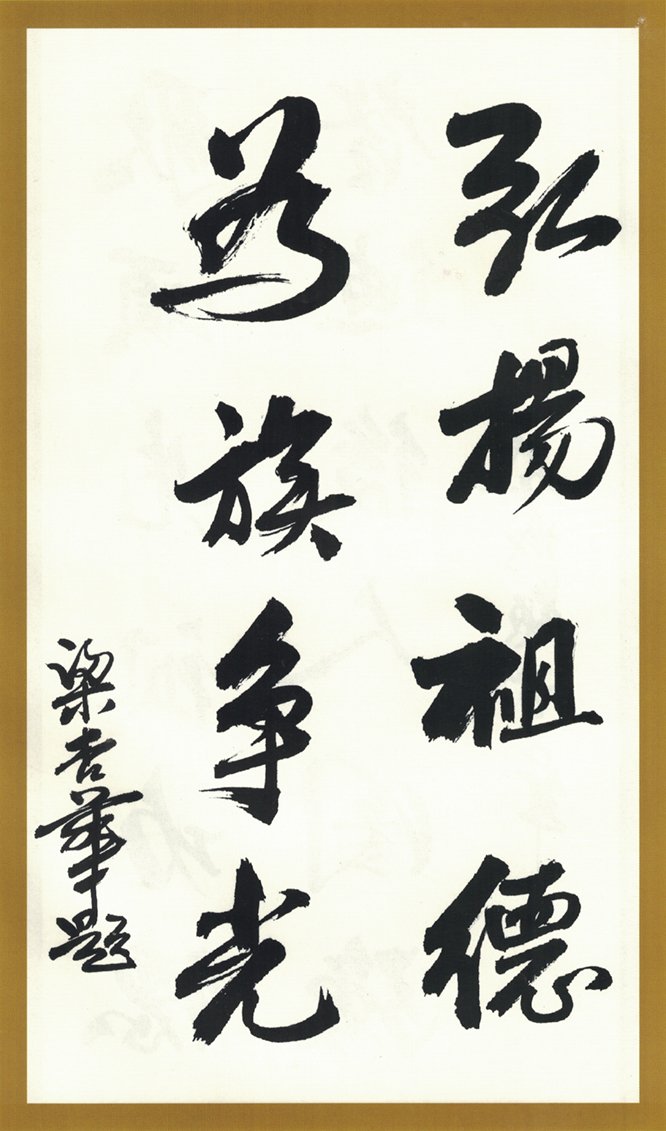 弘揚祖德
為族争光
梁吉華題